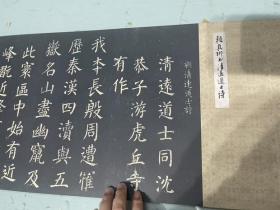 顏真卿書清遠道士詩
刻清遠道士詩
清遠道士同沈
恭子游虎丘寺
有作
我本長殷周遭罹
歷秦漢四瀆與五
嶽名山盡幽竄及
此寰區中始有近
峰翫近